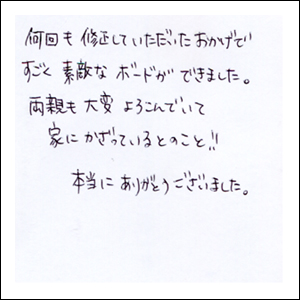 何回も修正していただいたおかげで
すごく素敵なボードができました。
両親も大変よろこんでいて
家にかざっているとのこと!!
本当にありがとうございました。